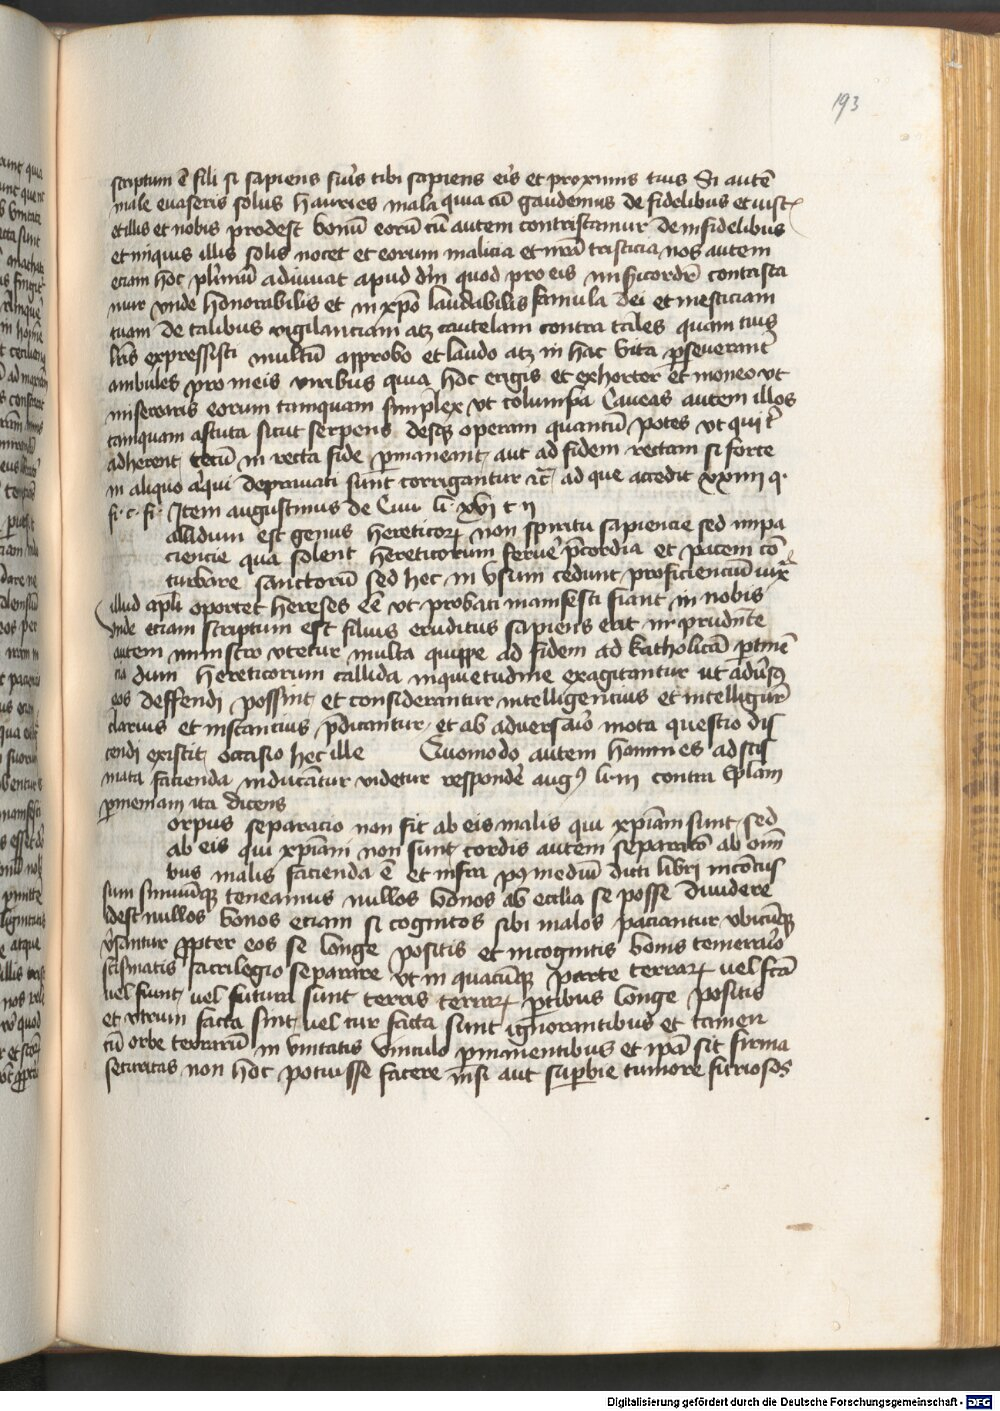 193
scriptum ē fili si sapiens fu̾is tibi sapiens eı̾s et proximis tuis Si autē
male evaseris solus hauries mala quia cū gaudemus de fidelibus et iust
et illis et nobis prodest bonū eorū cū autem contristamur de infidelibus
et iniquis illis solis nocet et eorum malicia et nr̄a tristicia nos autem
eciam hoc plimū adiuuat apud dm̄ quod pro eis misicordr̄ contrista
mur vnde honorabilis et in xp̄o laudabilis famula dei et mesticiam
tuam de talibus vigilanciam atz cautelam contra tales quam tuis
lr̄is expressisti multū approbo et laudo atz in hac vita pseuerant̄
ambules pro meis viribus quia hoc exigis et exhortor et moneo vt
miserearis eorum tamquam simplex vt columpa Caueas autem illos
tamquam astuta sicut serpens desqz operam quantū potes vt qui t
adherent tecū in recta fide pmaneant aut ad fidem rectam si forte
in aliquo aqui deprauati sunt corrigantur ꝛc̄ ad que accedit xxiiii q.
fi. c. fi. Item augustinus de Ciui li. xvi c ii
allidum est genus hereticoꝝ non spiritu sapiencie sed impa
ciencie qua solent hereticorum feruē pcordia et pacem cō
turbare sanctorū sed hec in vsum cedunt proficienciū iux
illud apl̄i oportet hereses eē vt probati manifesti fiant in nobis
vnde eciam scriptum est filius eruditus sapiens erit impruden̄te
autem ministro vtetur multa quippe ad fidem ad katholicā ptinē
cia dum hereticorum callida inquietudine exagitantur ut adu̾sꝰ
eos deffendi possint et considerantur intelligencius et intelligunt̄
clarius et instancius pdicantur et ab aduersaio mota questio dis
cendi existit occasio hec ille Quomodo autem homines ad scis
mata facienda inducātur videtur respondē augꝰ li. iii contra eplam
pmeniam ita dicens
orpus separacio non fit ab eis malis qui xp̄iam sunt sed
ab eis qui xp̄iam non sunt cordis autem separatō ab om̄
bus malis facienda ē et infra pꝰ mediū dicti libri inconcus
sum firmūqz teneamus nullos bonos ab ecclīa se posse diuidere
Idest nullos bonos eciam si cognitos sibi malos paciantur vbicūqz
v̾santur ppter eos se longe positis et incognitis bonis temeraı̾o
scismatis sacrilegio separare vt in quacūqz parte terraꝝ uel fcā
uel fiunt uel futura sunt ceteris terraꝝ ptibus longe positis
et vtrum facta sint vel cur facta sunt ignorantibus et tamen
cū orbe terrarū in vnitatis vinculo pmanentibus et ip̄a sit firma
securitas non hoc potuisse facere nisi aut supbie tumore furiosos
Digitalisierung gefördert durch die Deutsche Forschungsgemeinschaft - DFG